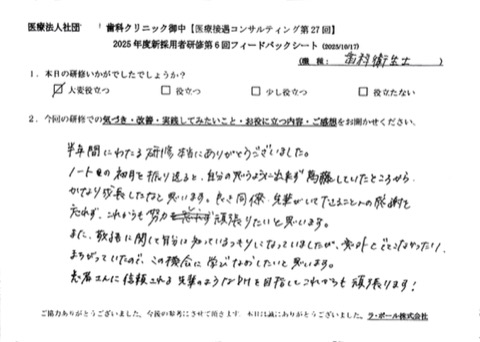 医療法人社団 歯科クリニック御中【医療接遇コンサルティング第27回】
2025年度新採用者研修第6回フィードバックシート (2025/10/17)
(職種: 歯科衛生士 )
1. 本日の研修いかがでしたでしょうか?
☑ 大変役立つ □ 役立つ □ 少し役立つ □ 役立たない
2. 今回の研修での気づき・改善・実践してみたいこと・お役に立つ内容・ご感想をお聞かせください。
半年間にわたる研修本当にありがとうございました。
ノートの初日を振り返ると、自分の思うように出来ず葛藤していたところから、
かなり成長したなと思います。良き同僚・先輩がいて下さることへの感謝を
忘れず、これからも努力し頑張りたいと思います。
また、敬語に関して自分は知っているつもりになっていましたが、意外とでてこなかったり、
まちがっていたので、この機会に学びなおしたいと思います。
患者さんに信頼される先輩のようなDHを目指してこれからも頑張ります!
ご協力ありがとうございました。今後の参考にさせて頂きます。本日は誠にありがとうございました。ラ・ポール株式会社